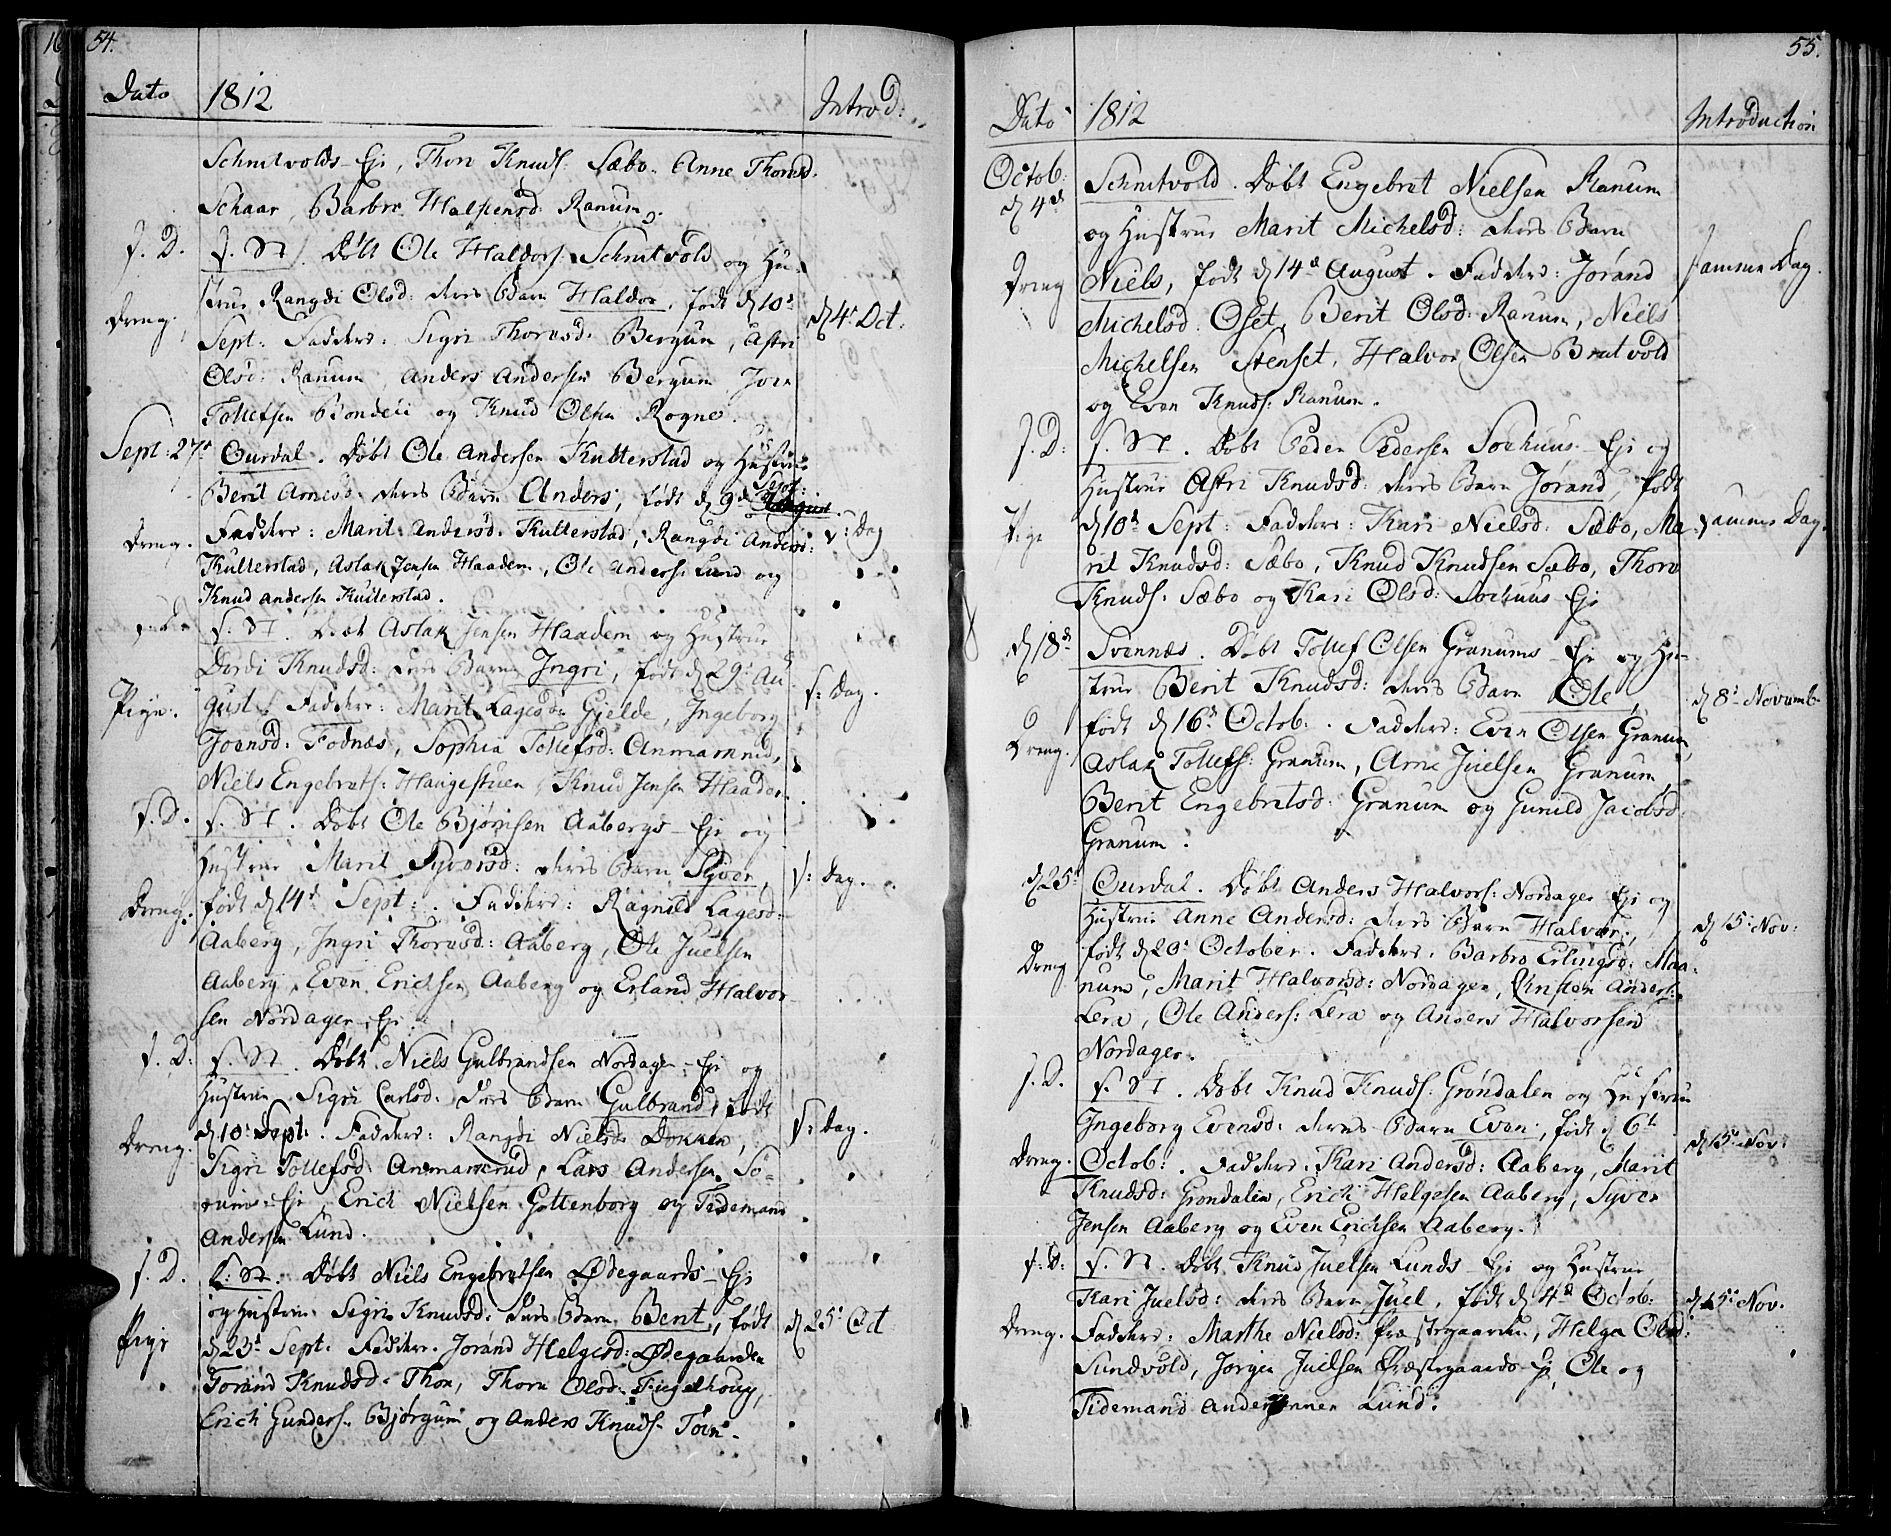 54.
Dato 1812 Introd:
Schrutvolds Eje, Thore Knuds: Sæbo. Anne Thoresd.
Schaar, Barbro Halstensd: Ranum.
f. D. f. St. Døbt Ole Haldors: Schrutvold og Hu-
strue Rangdi Olsd: deres Barn Haldor, født d 10d
Dreng. Sept: Faddere: Sigri Thoresd: Bergum, Astri d 4d Oct:
Olsd: Ranum, Anders Andersen Bergum Joen
Tollefsen Bondeli og Knud Olsen Rogne.
Sept: 27d Ourdal. Døbt Ole Andersen Kulterstad og Hustrue
Berit Arnesd: deres Barn Anders, født d 9d Sept:
Dreng. Faddere: Marit Andersd: Kulterstad, Rangdi Andersd: s: Dag
Kulterstad, Aslak Jensen Haadem, Ole Anders: Lund og
Knud Andersen Kulterstad.
f. St. Døbt Aslak Jensen Haadem og Hustrue
Dordi Knudsd: deres Barn Ingri, født d 29d Au-
Pige. gust. Faddere: Marit Lagesd: Gjelde, Ingeborg s: Dag.
Joensd: Fodnæs, Sophia Tollefsd: Anmarrud,
Niels Engebrets: Haugestuen, Knud Jensen Haadem.
f. D. f. St. Døbt Ole Bjørnsen Aabergs-Eje og
Hustrue Marit Syversd: deres Barn Syver, s: Dag.
Dreng. født d 14d Sept:. Faddere: Ragnild Lagesd:
Aaberg, Ingri Thoresd: Aaberg, Ole Juelsen
Aaberg, Even Erichsen Aaberg og Erland Halvor-
sen Nordager-Eje.
f. D: f. St. Døbt Niels Gulbrandsen Nordager-Eje og
Hustrue Sigri Carlsd: deres Barn Gulbrand, født
Dreng. d 10d Sept:. Faddere: Rangdi Nielsd: Dokken, s: Dag.
Sigri Tollefsd: Anmarrud, Lars Andersen So-
rums-Eje, Erich Nielsen Gottenborg og Tidemand
Andersen Lund.
f. D. f. St. Døbt Niels Engebretsen Ødegaards-Eje
og Hustrue Sigri Knudsd: deres Barn Berit, født d 25d Oct
Pige d 23d Sept: Faddere. Jorånd Helgesd: Ødegaarden
Torånd Knudsd: Thon, Thora Olsd: Fugelhoug,
Erich Gunders: Bjørgum og Anders Knuds: Toin.
55.
Dato 1812 Introduction
Octob:
d 4d Schrutvold. Døbt Engebret Nielsen Ranum
og Hustrue Marit Michelsd: deres Barn
Dreng Niels, født d 14d August. Faddere: Jørånd samme Dag.
Michelsd: Oset, Berit Olsd: Ranum, Niels
Michelsen Stenset, Halvor Olsen Brutvold
og Even Knuds: Ranum.
f. D: f. St. Døbt Peder Pedersen Sochuus-Eje og
Hustrue Astri Knudsd: deres Barn Jørånd, født
Pige d 10d Sept: Faddere: Kari Nielsd: Sæbo, Ma- samme Dag.
rit Knudsd: Sæbo, Knud Knudsen Sæbo, Thore
Knuds: Sæbo og Kari Olsd: Sochuus Eje
d 18d Svennæs. Døbt Tollef Olsen Granums-Eje og Hu-
strue Berit Knudsd: deres Barn Ole, d 8d Novemb:
Dreng. født d 16d Octob:. Faddere: Even Olsen Granum,
Aslak Tollefs: Granum, Arne Juelsen Granum
Berit Engebretsd: Granum og Gunild Jacobsd:
Granum.
d 25d Ourdal. Døbt Anders Halvors: Nordager Eje og
Hustrue Anne Andersd: deres Barn Halvor, d 15d Nov:
Dreng født d 20d October. Faddere. Barbro Erlingsd: Maa-
num, Marit Halvorsd: Nordager, Christen Anders:
Lera, Ole Anders: Lera og Anders Halvorsen
Nordager.
f. D. f. St. Døbt Knud Knuds: Grøndalen og Hustrue
Ingeborg Evensd: deres Barn Even, født d 6d d 15d Nov:
Dreng. Octob:. Faddere. Kari Andersd: Aaberg, Marit
Knudsd: Grøndalen, Erich Helgesen Aaberg, Syver
Jensen Aaberg og Even Erichsen Aaberg.
f: D: f. St. Døbt Knud Juelsen Lunds Eje og Hustrue
Kari Juelsd: deres Barn Juel, født d 4d Octob: d 15d Nov.
Dreng. Faddere: Marthe Nielsd: Præstegaarden, Helga Olsd:
Sundvold, Jørgen Juelsen Præstegaards-Eje, Ole og
Tidemand Andersønner Lund.